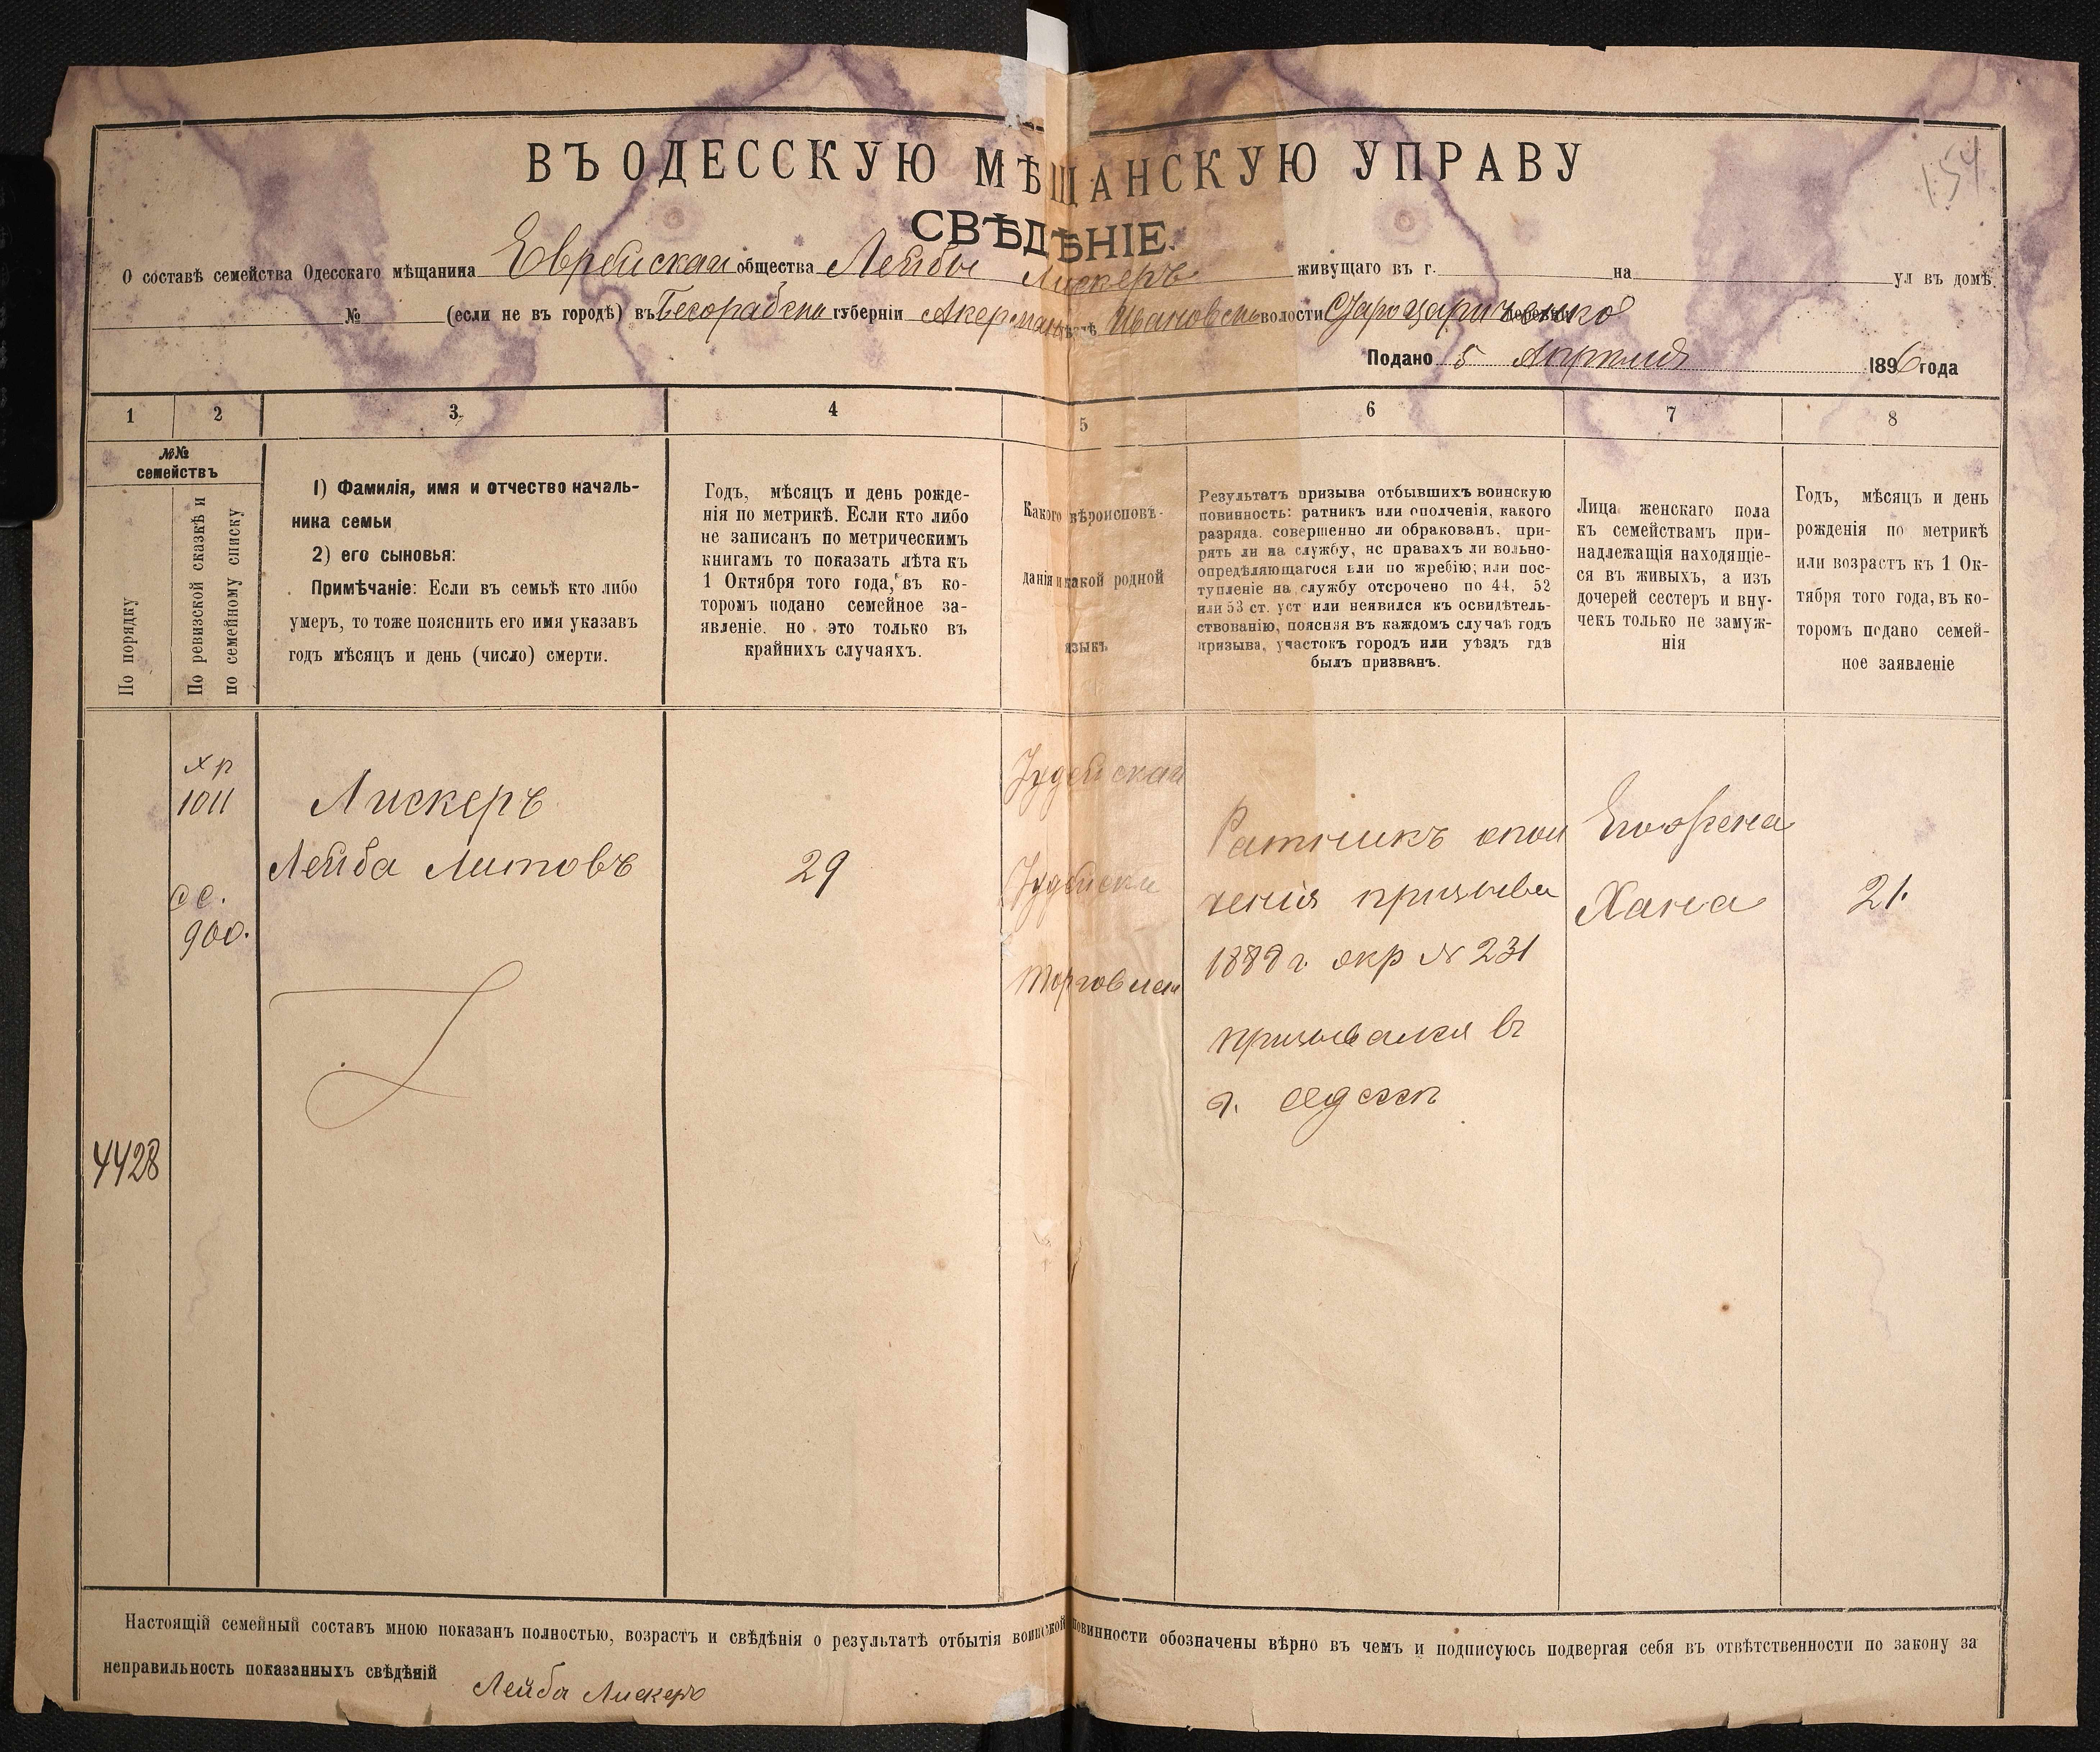 154
ВЪ ОДЕССКУЮ МѢЩАНСКУЮ УПРАВУ
СВѢДѢНІЕ.
О составѣ семейства Одесскаго мѣщанина Еврейскаи общества Лейбы Лискеръ живущаго въ г. на ул въ домѣ
№ (если не въ городѣ) въ Бесорабски губерніи Акерман уѣздѣ Ивановски волости Староцаричанко деревни
Подано 5 Апрѣля 1896 года
1 2 3 4 5 6 7 8
№№
семействъ
По порядку
По ревизской сказкѣ и
по семейному списку
1) Фамилія, имя и отчество началь-
ника семьи
2) его сыновья:
Примѣчаніе: Если въ семьѣ кто либо
умеръ, то тоже пояснить его имя указавъ
годъ мѣсяцъ и день (число) смерти.
Годъ, мѣсяцъ и день рожде-
нія по метрикѣ. Если кто либо
не записанъ по метрическимъ
книгамъ то показать лѣта къ
1 Октября того года, въ ко-
торомъ подано семейное за-
явленіе. но это только въ
крайнихъ случаяхъ.
Какого вѣроисповѣ-
данія и какой родной
языкъ
Результатъ призыва отбывшихъ воинскую
повинность: ратникъ или ополченія, какого
разряда. совершенно ли обракованъ, при-
рять ли на службу, нс правахъ ли вольно-
опредѣляющагося или по жребію; или пос-
тупленіе на службу отсрочено по 44, 52
или 53 ст. уст или неявился къ освидѣтель-
ствованію, поясняя въ каждомъ случаѣ годъ
призыва, участокъ городъ или уѣздъ гдѣ
былъ призванъ.
Лица женскаго пола
къ семействамъ при-
надлежащія находящіе-
ся въ живыхъ, а изъ
дочерей сестеръ и вну-
чекъ только не замуж-
нія
Годъ, мѣсяцъ и день
рожденія по метрикѣ
или возрастъ къ 1 Ок-
тября того года, въ ко-
торомъ подано семей-
ное заявленіе
4428
хр
1011
сс.
900.
Лискеръ
Лейба Литовъ
29
Іудейскаи
Іудейски
торговлеи
Ратникъ опол
ченія призыва
1888 г. окр № 231
призывался въ
г. Одессѣ
Его жена
Хана
21.
Настоящій семейный составъ мною показанъ полностью, возрастъ и свѣдѣнія о результатѣ отбытія воинской повинности обозначены вѣрно въ чемъ и подписуюсь подвергая себя въ отвѣтственности по закону за
неправильность показанныхъ свѣдѣній
Лейба Лискеръ